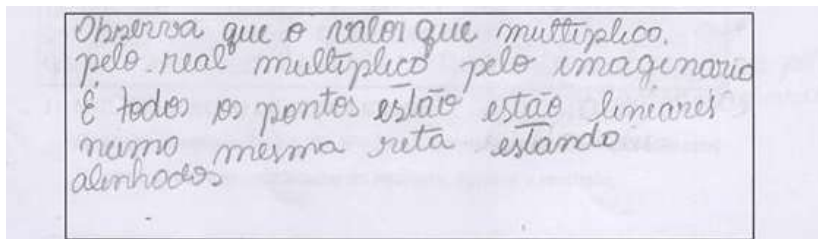 Observa que o valor que multiplico.
pelo real multiplico pelo imaginario
E todos os pontos estão estão lineares
numo mesma reta estando
alinhados